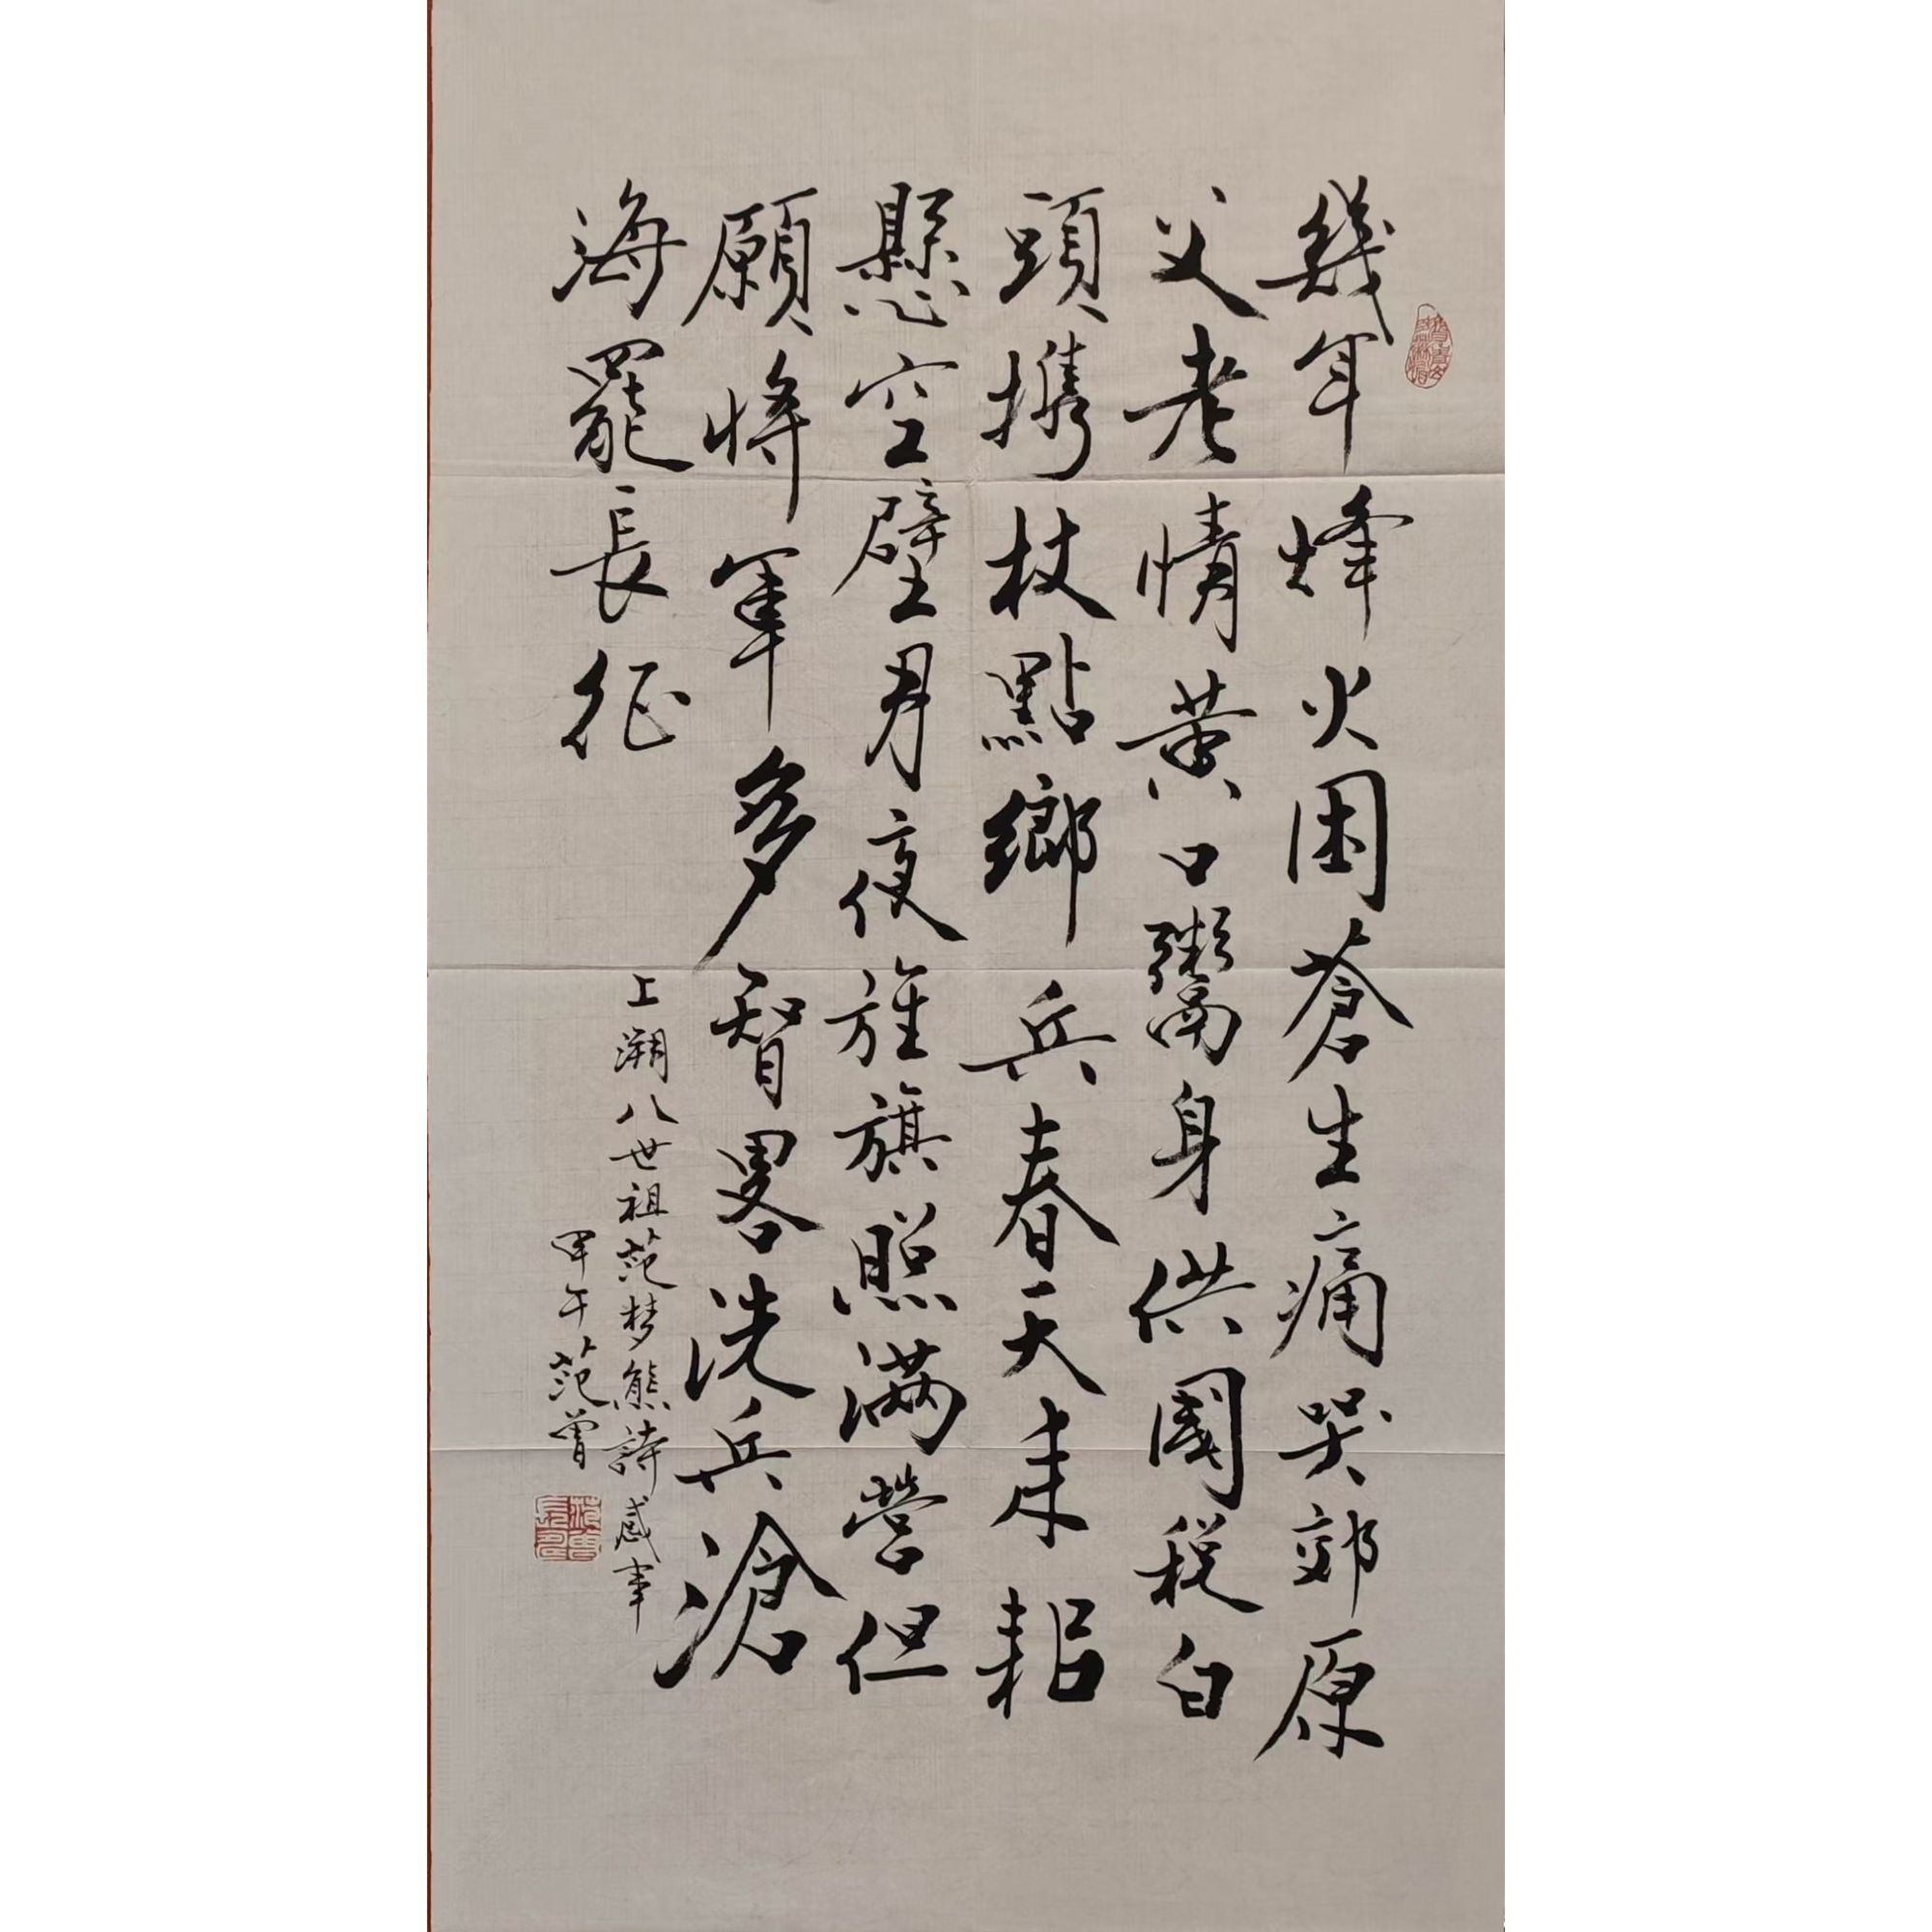 幾年烽火困蒼生痛哭郊原
父老情黄口鬻身供國税白
頭携杖點鄉兵春天耒耜
懸空壁月夜旌旗照滿營但
願將軍多智畧洗兵滄
海罷長征
上溯八世祖范梦熊詩感事
甲午范曾